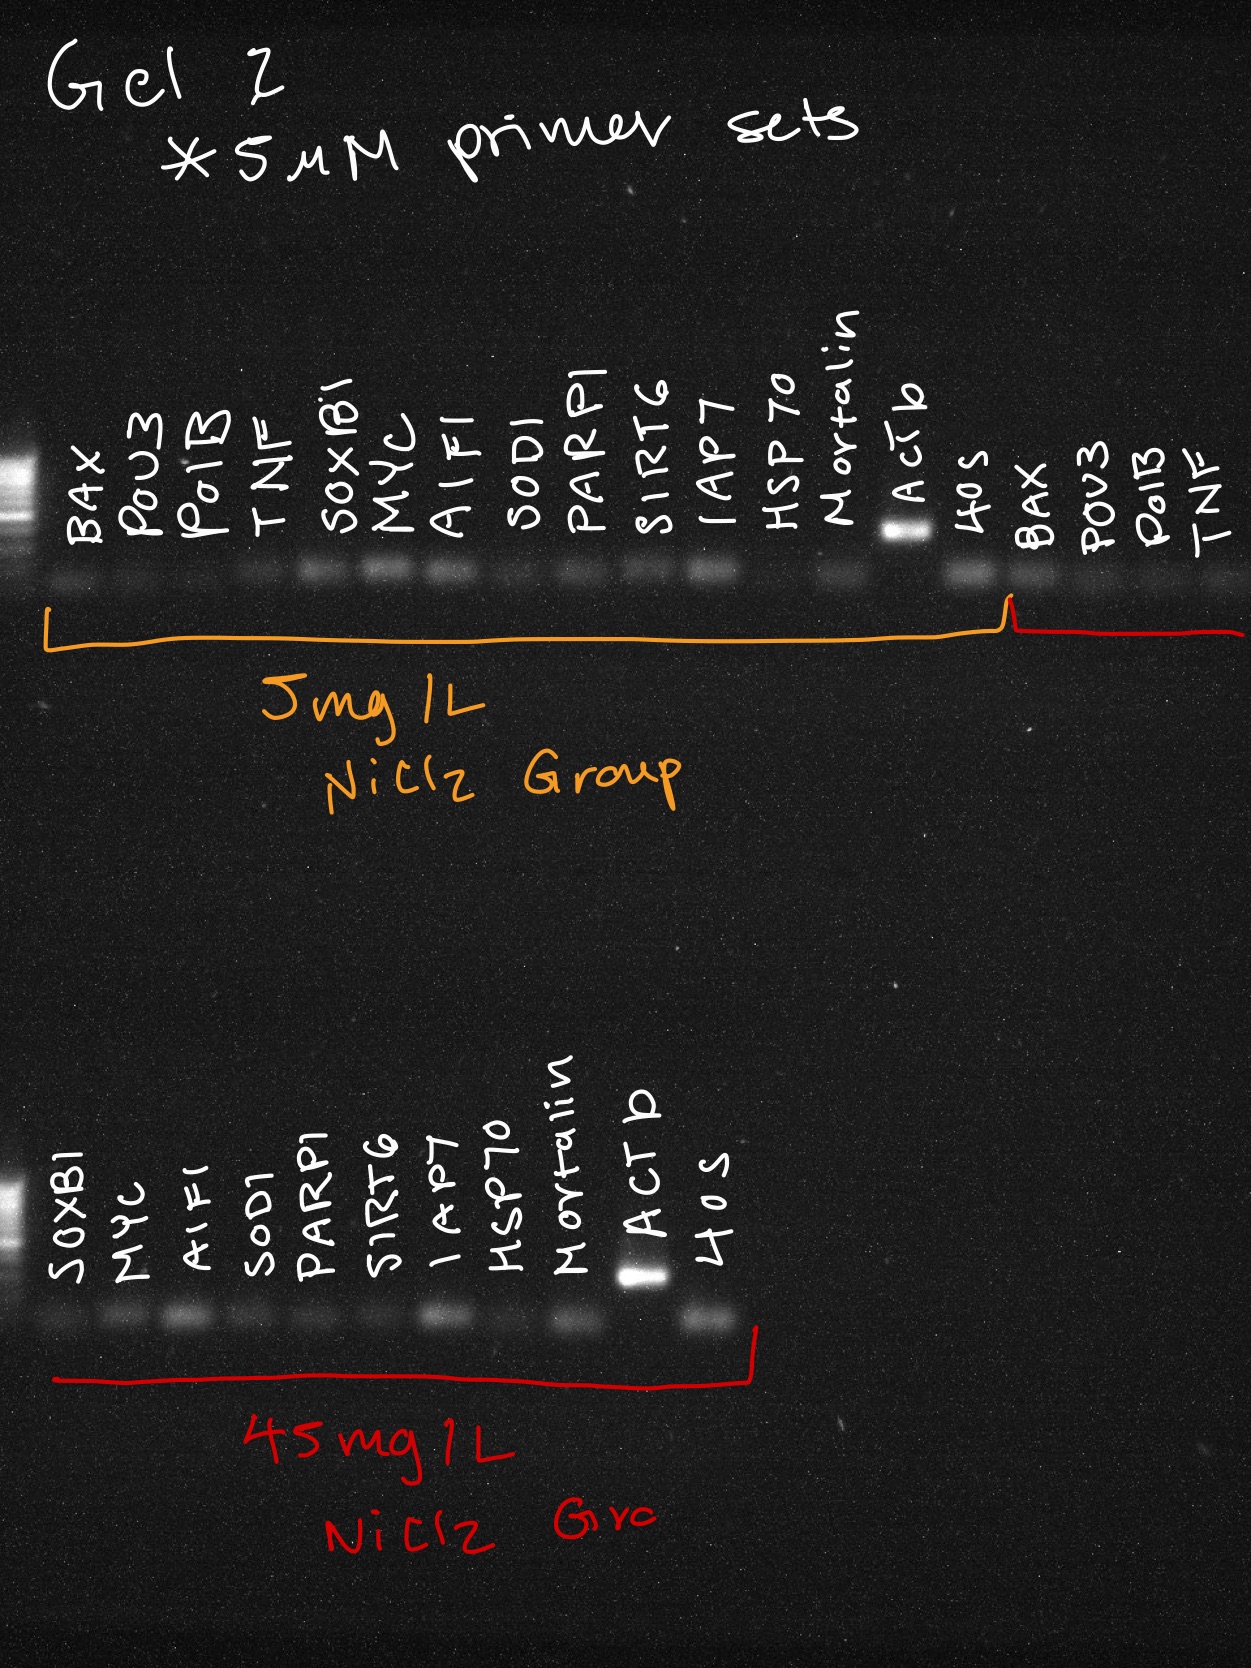 Gel 2
*5 µM primer sets
BAX
POU3
PolB
TNF
SOXB1
MYC
AIF1
SOD1
PARP1
SIRT6
IAP7
HSP70
Mortalin
ACTb
40S
BAX
POU3
PolB
TNF
5mg/L
NiCl2 Group
SOXB1
MYC
AIF1
SOD1
PARP1
SIRT6
IAP7
HSP70
Mortalin
ACTb
40S
45mg/L
NiCl2 Gro